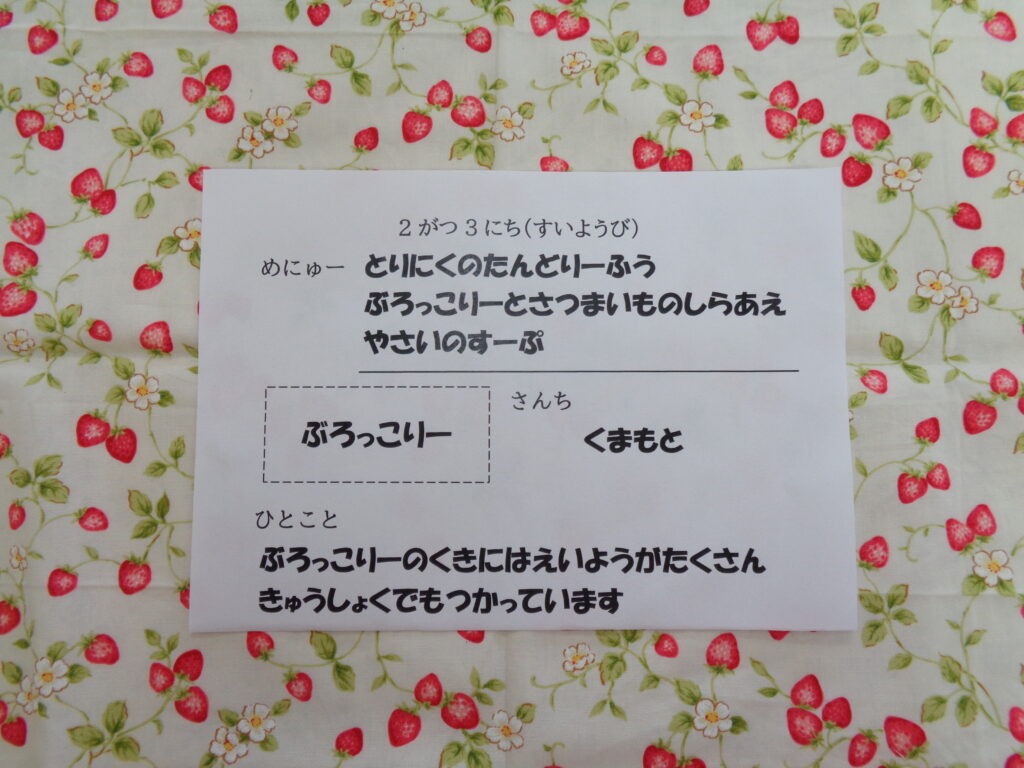 2がつ3にち(すいようび)
めにゅー とりにくのたんどりーふう
ぶろっこりーとさつまいものしらあえ
やさいのすーぷ
ぶろっこりー
さんち
くまもと
ひとこと
ぶろっこりーのくきにはえいようがたくさん
きゅうしょくでもつかっています